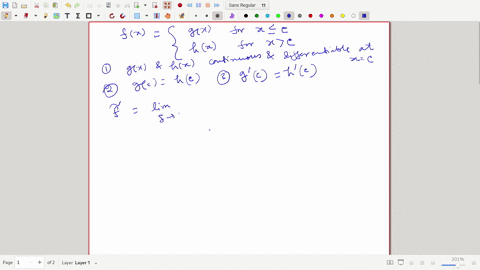 Sans Regular 11
f(x) = { g(x) for x ≤ c
h(x) for x > c
① g(x) & h(x) continuous & differentiable at x=c
② g(c) = h(c) ③ g'(c) = h'(c)
f̃' = lim
δ→
Page 1 of 2 Layer Layer 1
201%